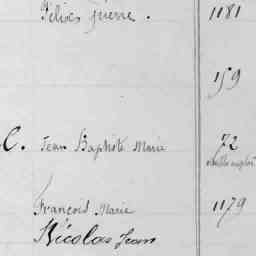 Félix Pierre. 1181
159
C. Jean Baptiste Marie 72
François Marie 1179
Nicolas Jean